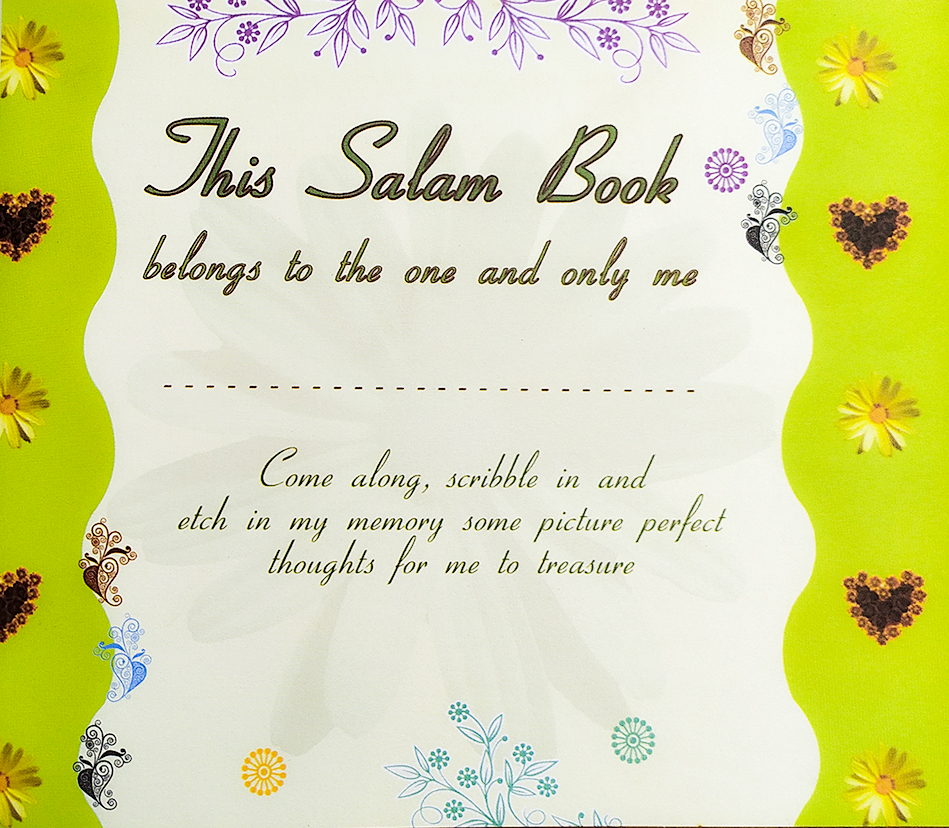 This Salam Book
belongs to the one and only me
Come along, scribble in and
etch in my memory some picture perfect
thoughts for me to treasure